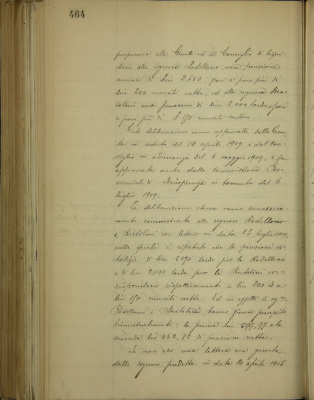 464
proporre alla Giunta ed al Consiglio di liqui-
dare alla signora Rodellono una pensione
annua di Lire 2490 pari a poco più di
lire 200 mensili nette, ed alla signora Ber-
tolini una pensione di lire 2.000 lorde, pari
a poco più di £ 170 mensili nette.
Tale deliberazione venne approvata dalla Giun-
ta in seduta del 10 aprile 1909 e dal Con-
siglio in adunanza del 6 maggio 1909, e fu
approvata anche dalla Commissione Pro-
vinciale di in seduta del 6
luglio 1909.
La deliberazione stessa venne successiva-
mente comunicata alle signore Rodellono
e Bertolini con lettere in data 24 luglio 1909,
nelle quali è ripetuto che le pensioni di
di lire 2490 lorde per la Rodellono
e di lire 2.000 lorde per la Bertolini cor-
rispondono rispettivamente a lire 200 ed a
lire 170 mensili nette. Ed in effetto le sig.re
Rodellono e Bertolini hanno finora percepito
trimestralmente: la prima lire e la
seconda lire di pensione netta.
Se non che una lettera ora giunta
dalle signore predette in data 20 aprile 1918